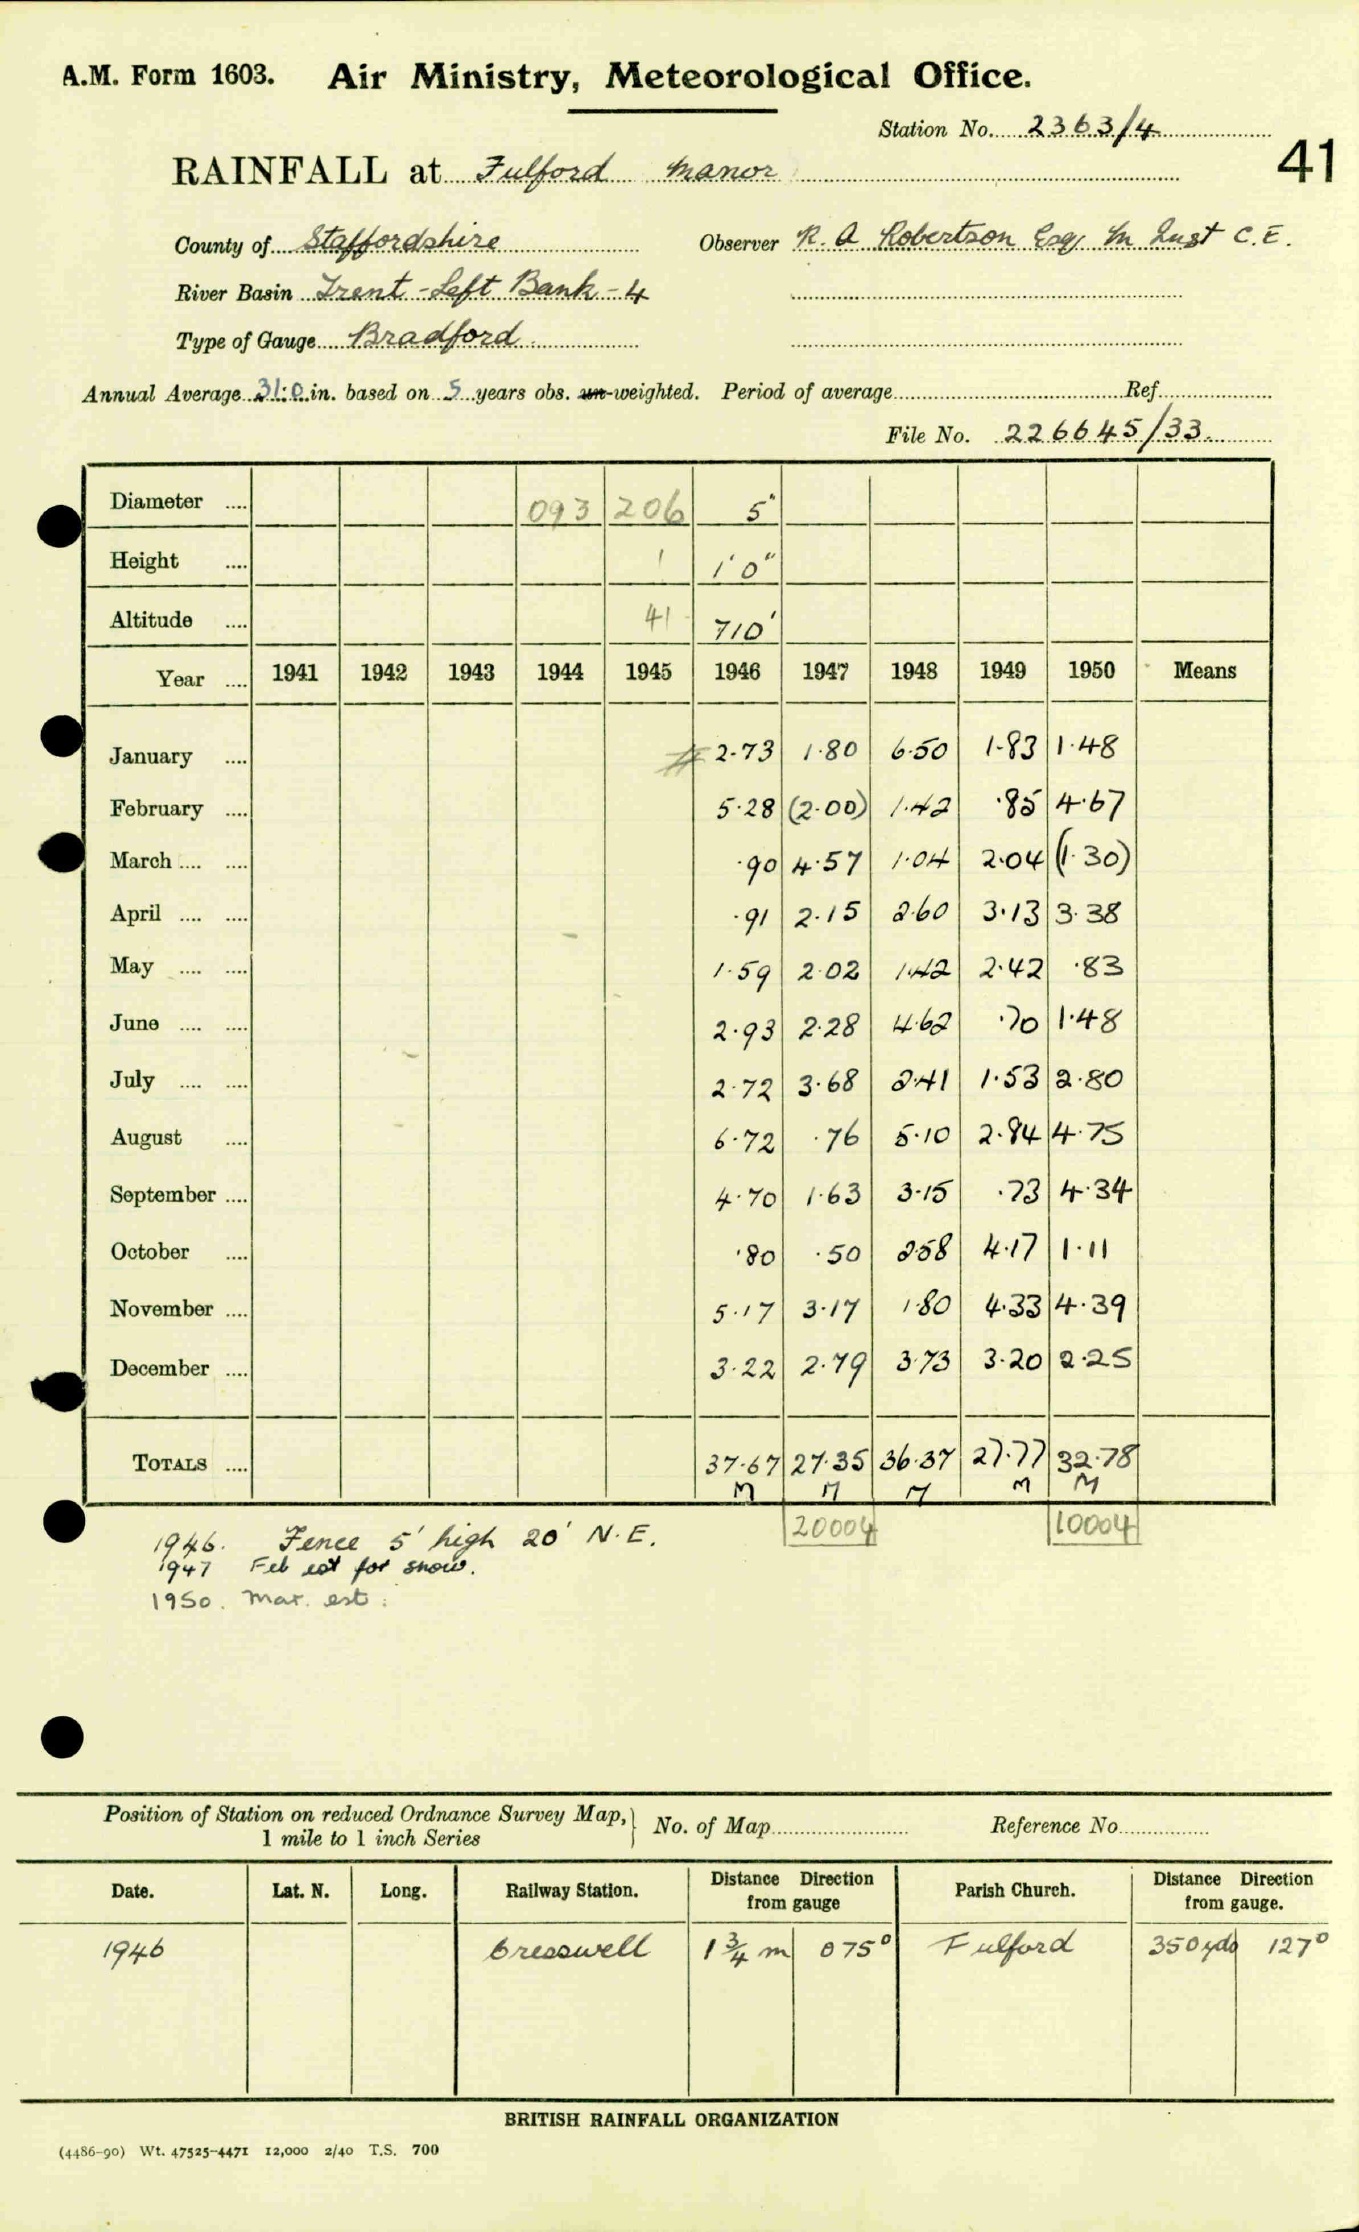 A.M. Form 1603. Air Ministry, Meteorological Office.
Station No. 2363/4
41
RAINFALL at Fulford Manor
County of Staffordshire Observer R. A Robertson Esq, M Inst C.E.
River Basin Trent - Left Bank - 4
Type of Gauge Bradford
Annual Average 31.0 in. based on 5 years obs. un-weighted. Period of average Ref.
File No. 226645/33.
Diameter .... 093 206 5"
Height .... 1 1' 0"
Altitude .... 41 710'
Year .... 1941 1942 1943 1944 1945 1946 1947 1948 1949 1950 Means
January .... # 2.73 1.80 6.50 1.83 1.48
February .... 5.28 (2.00) 1.42 .85 4.67
March .... .... .90 4.57 1.04 2.04 (1.30)
April .... .... .91 2.15 2.60 3.13 3.38
May .... .... 1.59 2.02 1.42 2.42 .83
June .... .... 2.93 2.28 4.62 .70 1.48
July .... .... 2.72 3.68 2.41 1.53 2.80
August .... 6.72 .76 5.10 2.84 4.75
September .... 4.70 1.63 3.15 .73 4.34
October .... .80 .50 2.58 4.17 1.11
November .... 5.17 3.17 1.80 4.33 4.39
December .... 3.22 2.79 3.73 3.20 2.25
TOTALS .... 37.67 27.35 36.37 27.77 32.78
M M M M M
20004 10004
1946. Fence 5' high 20' N.E.
1947 Feb est for snow.
1950. Mar. est.
Position of Station on reduced Ordnance Survey Map, } No. of Map Reference No.
1 mile to 1 inch Series
Date. Lat. N. Long. Railway Station. Distance Direction from gauge Parish Church. Distance Direction from gauge.
1946 Cresswell 1 3/4 m 075° Fulford 350 yds 127°
BRITISH RAINFALL ORGANIZATION
(4486-90) Wt. 47525-4471 12,000 2/40 T.S. 700